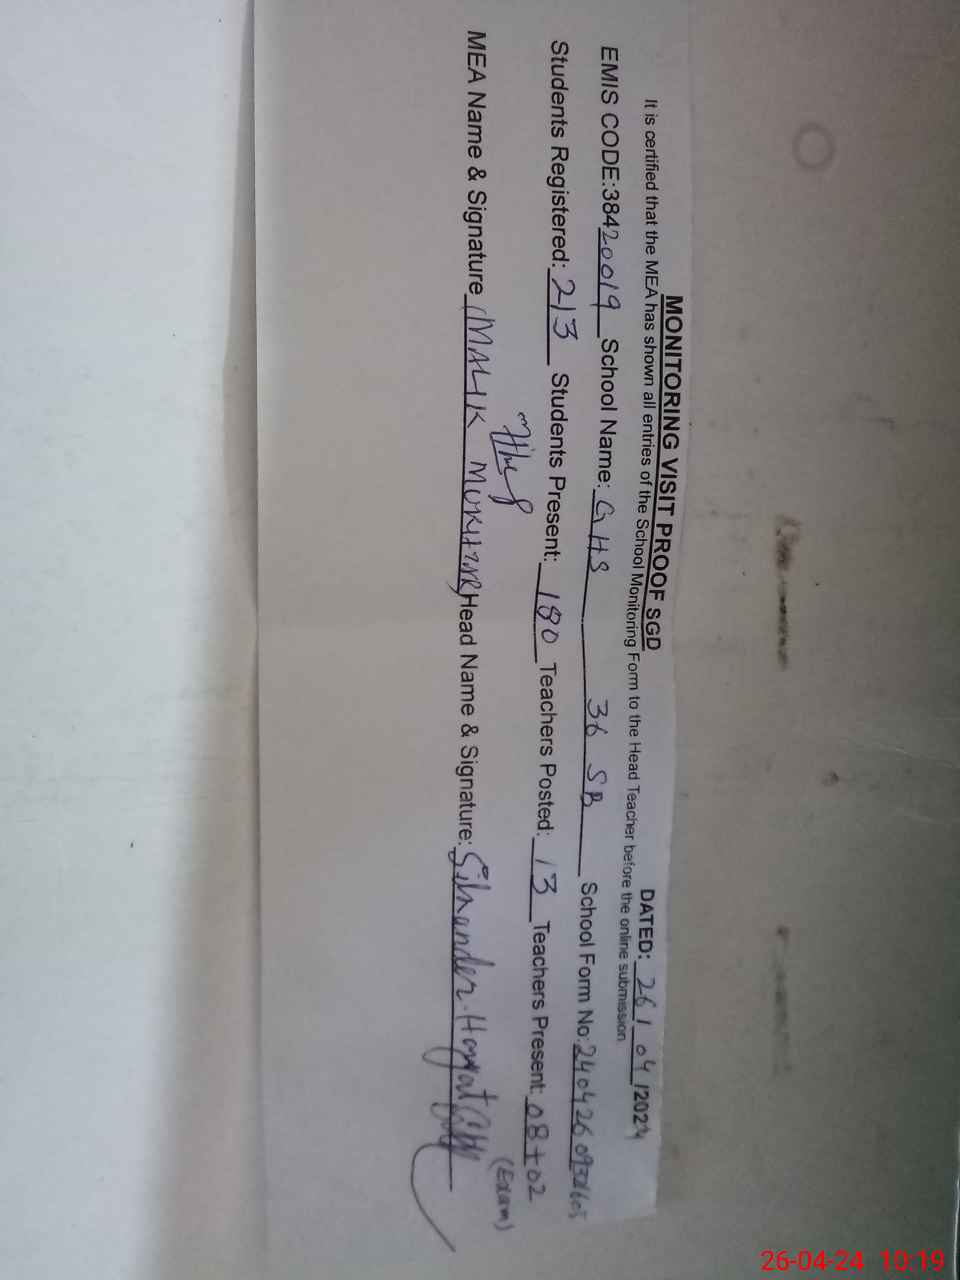 MONITORING VISIT PROOF SGD
DATED: 26/04/2024
It is certified that the MEA has shown all entries of the School Monitoring Form to the Head Teacher before the online submission
EMIS CODE:38420019 School Name: GHS 36 SB School Form No:240426
Students Registered: 213 Students Present: 180 Teachers Posted: 13 Teachers Present: 08+02
(Exam)
MEA Name & Signature MALIK Head Name & Signature: Hayat
26-04-24 10:19